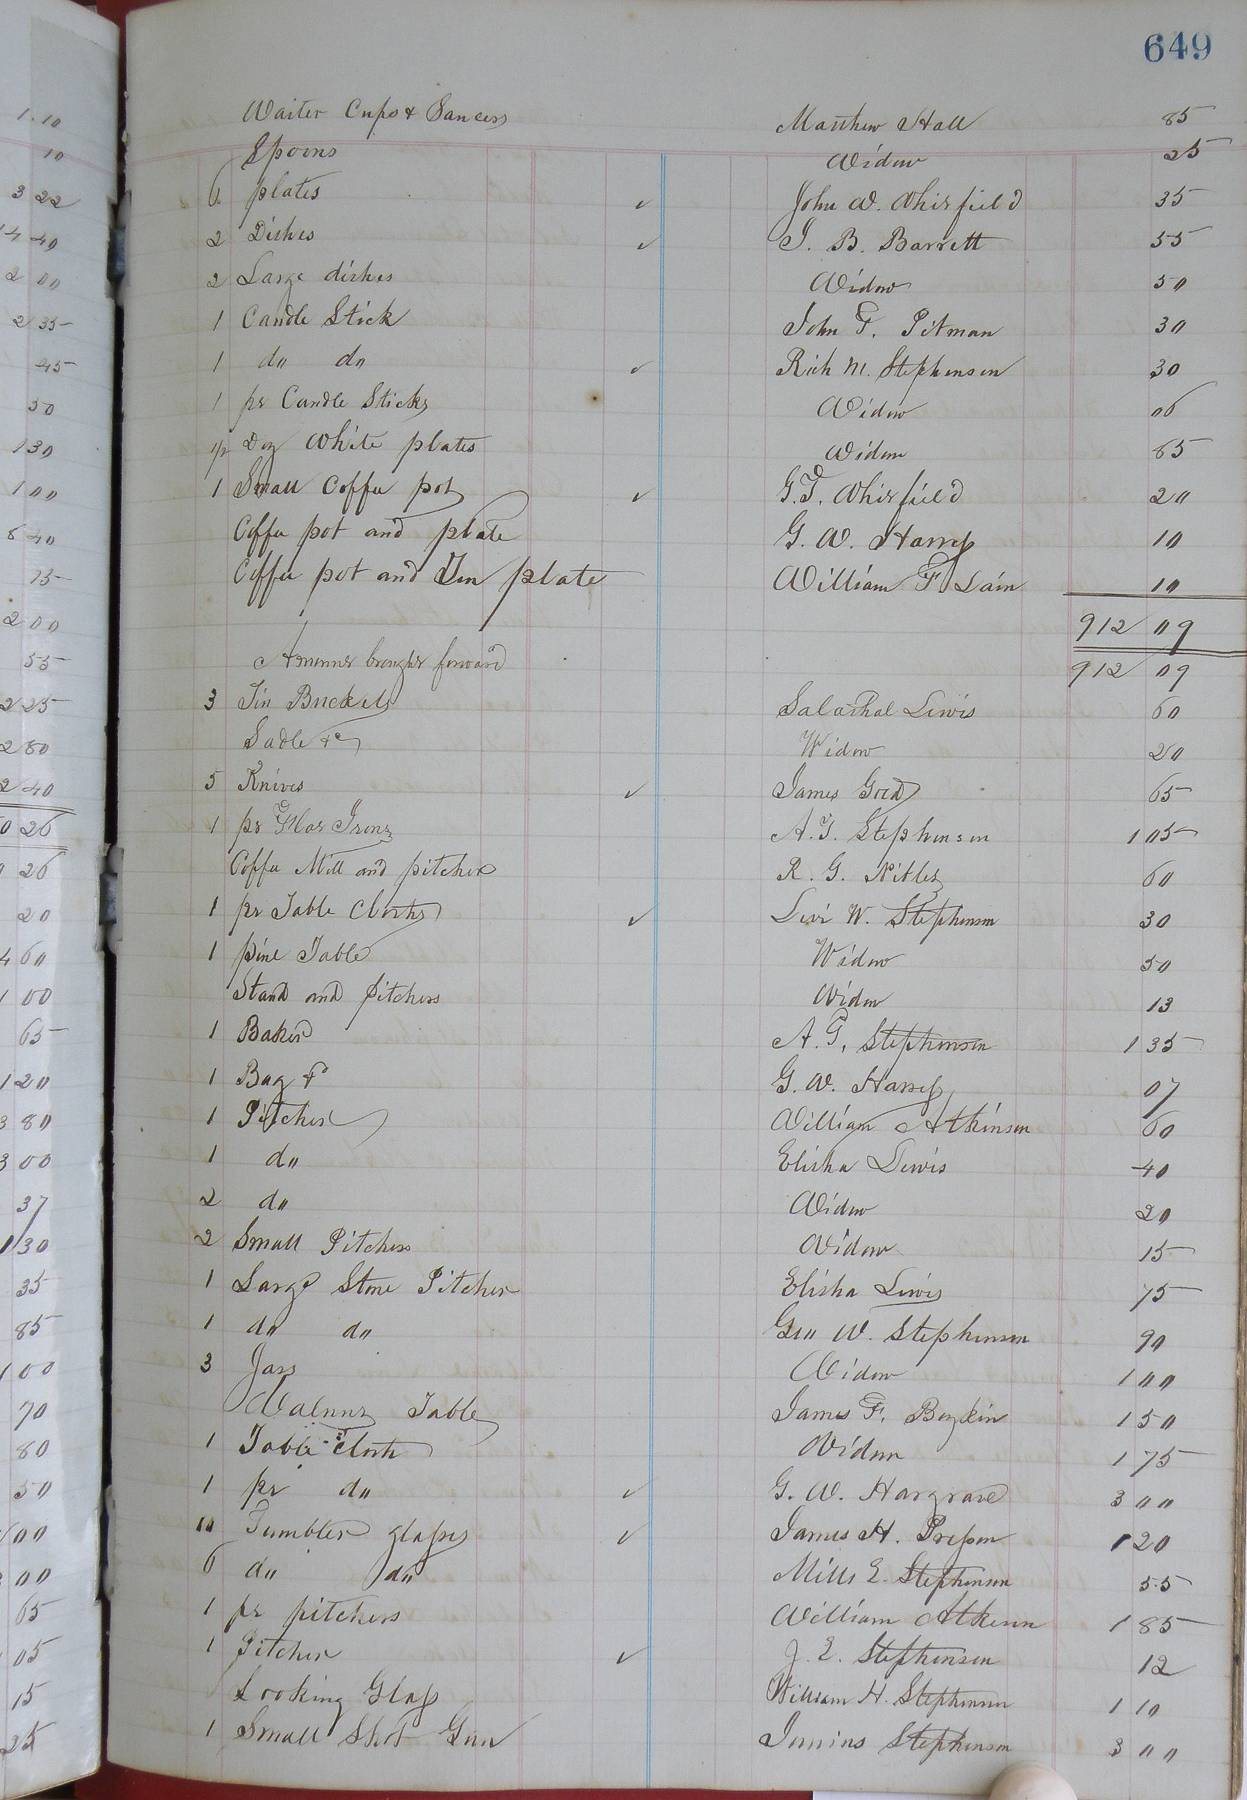 649
Waiter Cups & Saucers Matthew Hall 85
Spoons Widow 25
6 plates ✓ John W. Whitfield 35
2 Dishes ✓ J. B. Barrett 55
2 Large dishes Widow 50
1 Candle Stick John F. Pitman 30
1 do do ✓ Rich M. Stephenson 30
1 pr Candle Sticks Widow 06
1/2 Doz White plates Widow 65
1 Small Coffee pot ✓ G. T. Whitfield 20
Coffee pot and plate G. W. Harris 10
Coffee pot and Tin plate William F. Lain 10
912 09
Amount brought forward 912 09
3 Tin Buckets Salathal Lewis 60
Sadle &c Widow 20
5 Knives ✓ James 65
1 pr Flat Irons A. T. Stephenson 1 05
Coffee Mill and pitcher R. G. 60
1 pr Table Cloths ✓ Levi W. Stephenson 30
1 pine Table Widow 50
Stand and Pitchers Widow 13
1 Baker A. T. Stephenson 1 35
1 Bag &c G. W. Harris 07
1 Pitcher William Atkinson 60
1 do Elisha Lewis 40
2 do Widow 20
2 Small Pitchers Widow 15
1 Large Stone Pitcher Elisha Lewis 75
1 do do Geo W. Stephenson 90
3 Jars Widow 1 00
Walnut Table James F. Boykin 1 50
1 Table Cloth Widow 1 75
1 pr do ✓ G. W. Hargrave 3 00
10 Tumbler glasses ✓ James H. 1 20
6 do do Mills E. Stephenson 55
1 pr pitchers William Atkison 1 85
1 Pitcher ✓ J. E. Stephenson 12
Looking Glass William H. Stephenson 1 10
1 Small Shot Gun Junius Stephenson 3 00
1.10
10
3 22
4 40
2 00
2 35
45
50
1 30
1 00
8 40
75
2 00
55
2 25
2 80
2 40
0 26
26
20
4 60
1 00
65
1 20
3 80
3 00
37
1 30
35
85
1 00
70
80
50
00
00
65
05
15
25